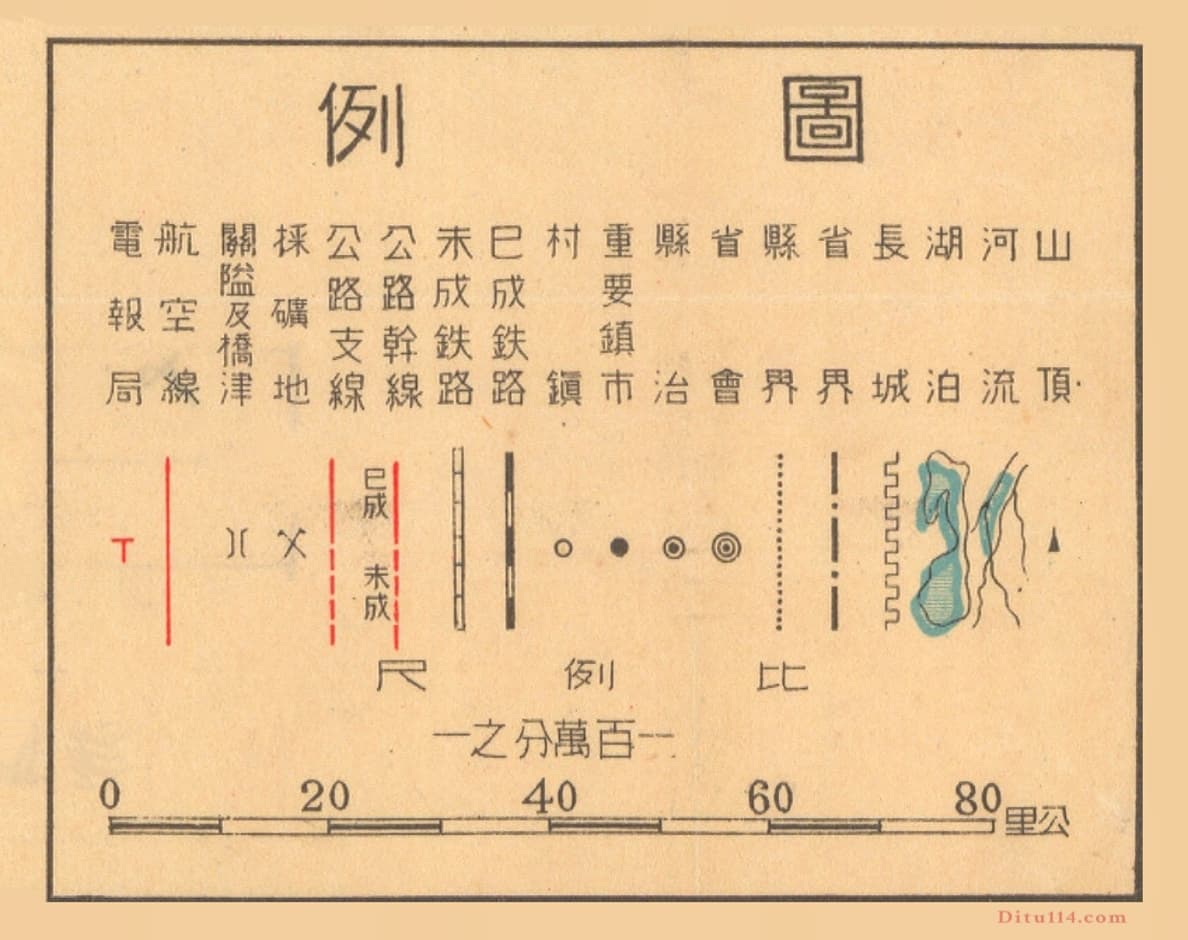 圖例
山頂
河流
湖泊
長城
省界
縣界
省會
縣治
重要鎮市
村鎭
已成鉄路
未成鉄路
公路幹線
公路支線
採礦地
關隘及橋津
航空線
電報局
已成
未成
比例尺
一百萬分之一
0 20 40 60 80
公里
Ditu114.com